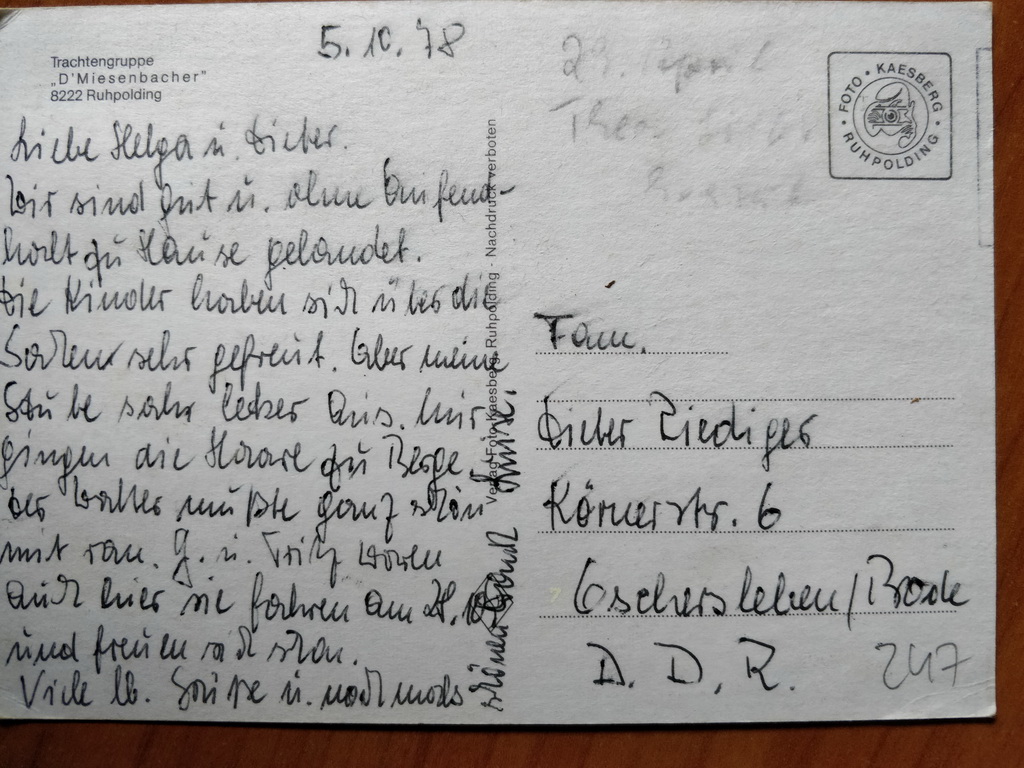 Trachtengruppe
„D'Miesenbacher"
8222 Ruhpolding
5.10.78
Liebe Helga u. Dieter.
Wir sind gut u. ohne Aufend-
halt zu Hause gelandet.
Die Kinder haben sich über die
Sachen sehr gefreut. Aber meine
Stube sah lecker aus. Mir
gingen die Haare zu Berge.
der Walter mußte ganz schön
mit ran. G. u. Fritz waren
auch hier sie fahren am 28.
und freuen sich schon.
Viele lb. Grüße u. nochmals
schönen Dank
Verlag Foto Kaesberg, Ruhpolding - Nachdruck verboten
29. April
FOTO • KAESBERG • RUHPOLDING •
Fam.
Dieter Riediger
Körnerstr. 6
Oschersleben/Bode
D. D. R.
247